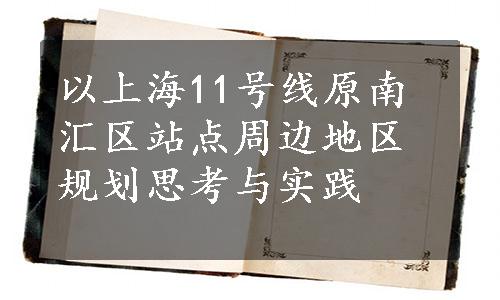 以上海11号线原南
汇区站点周边地区
规划思考与实践